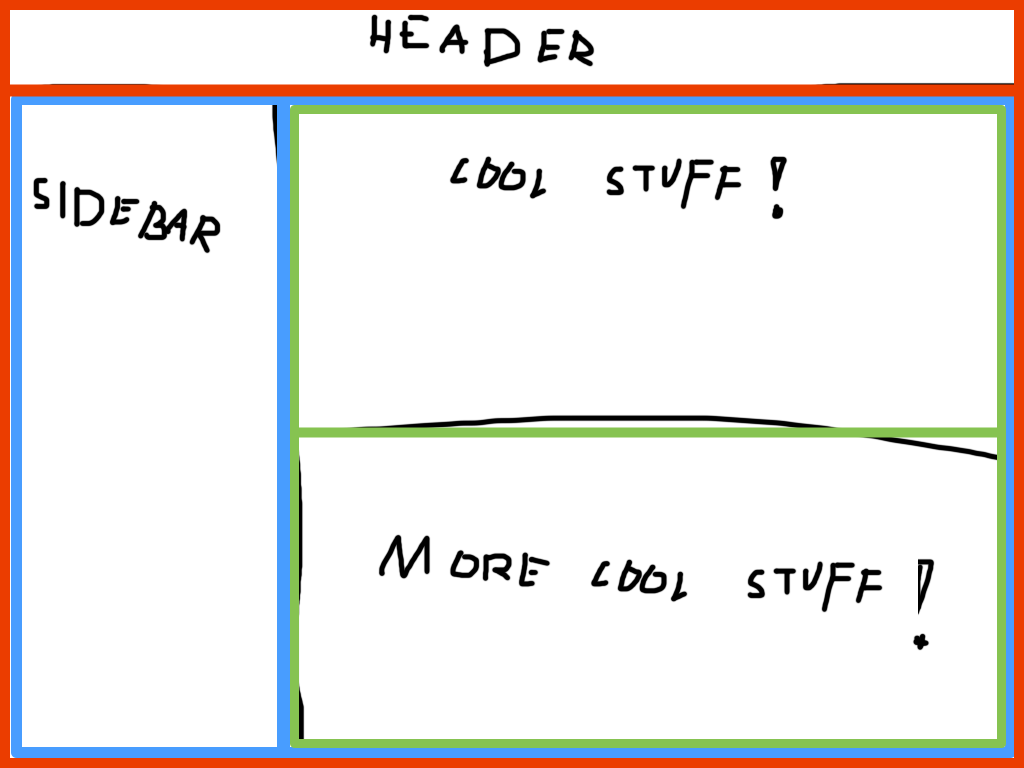 HEADER
SIDEBAR
COOL STUFF!
MORE COOL STUFF!